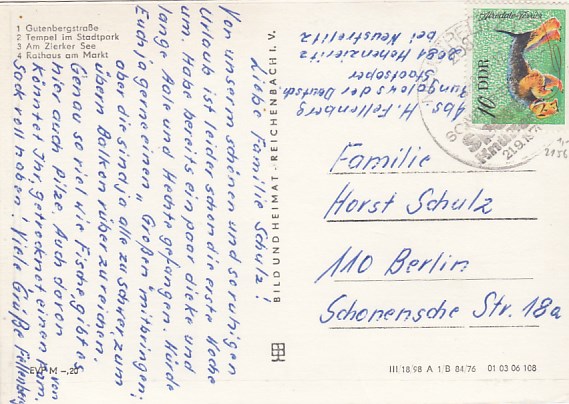 1 Gutenbergstraße
2 Tempel im Stadtpark
3 Am Zierker See
4 Rathaus am Markt
Liebe Familie Schulz!
Von unserm schönen und so ruhigen
Urlaub ist leider schon die erste Woche
um. Habe bereits ein paar dicke und
lange Aale und Hechte gefangen. Würde
Euch ja gerne einen „Großen" mitbringen,
aber die sind ja alle zu schwer zum
übern Balken rüber zu reichen.
Genau so viel wie Fische, gibt es
hier auch Pilze. Auch davon
könntet Ihr, getrocknet einen
Sack voll haben! Viele Grüße Fellenberg
EVP M -,20
BILD UND HEIMAT · REICHENBACH I. V.
Abs. H. Fellenberg
Bungalows der Deutsch.
Staatsoper
2081 Hohenzieritz
bei Neustrelitz
Airedale-Terrier
10 DDR
21.9.76
Familie
Horst Schulz
110 Berlin
Schonensche Str. 18a
III/18/98 A 1/B 84/76 01 03 06 108